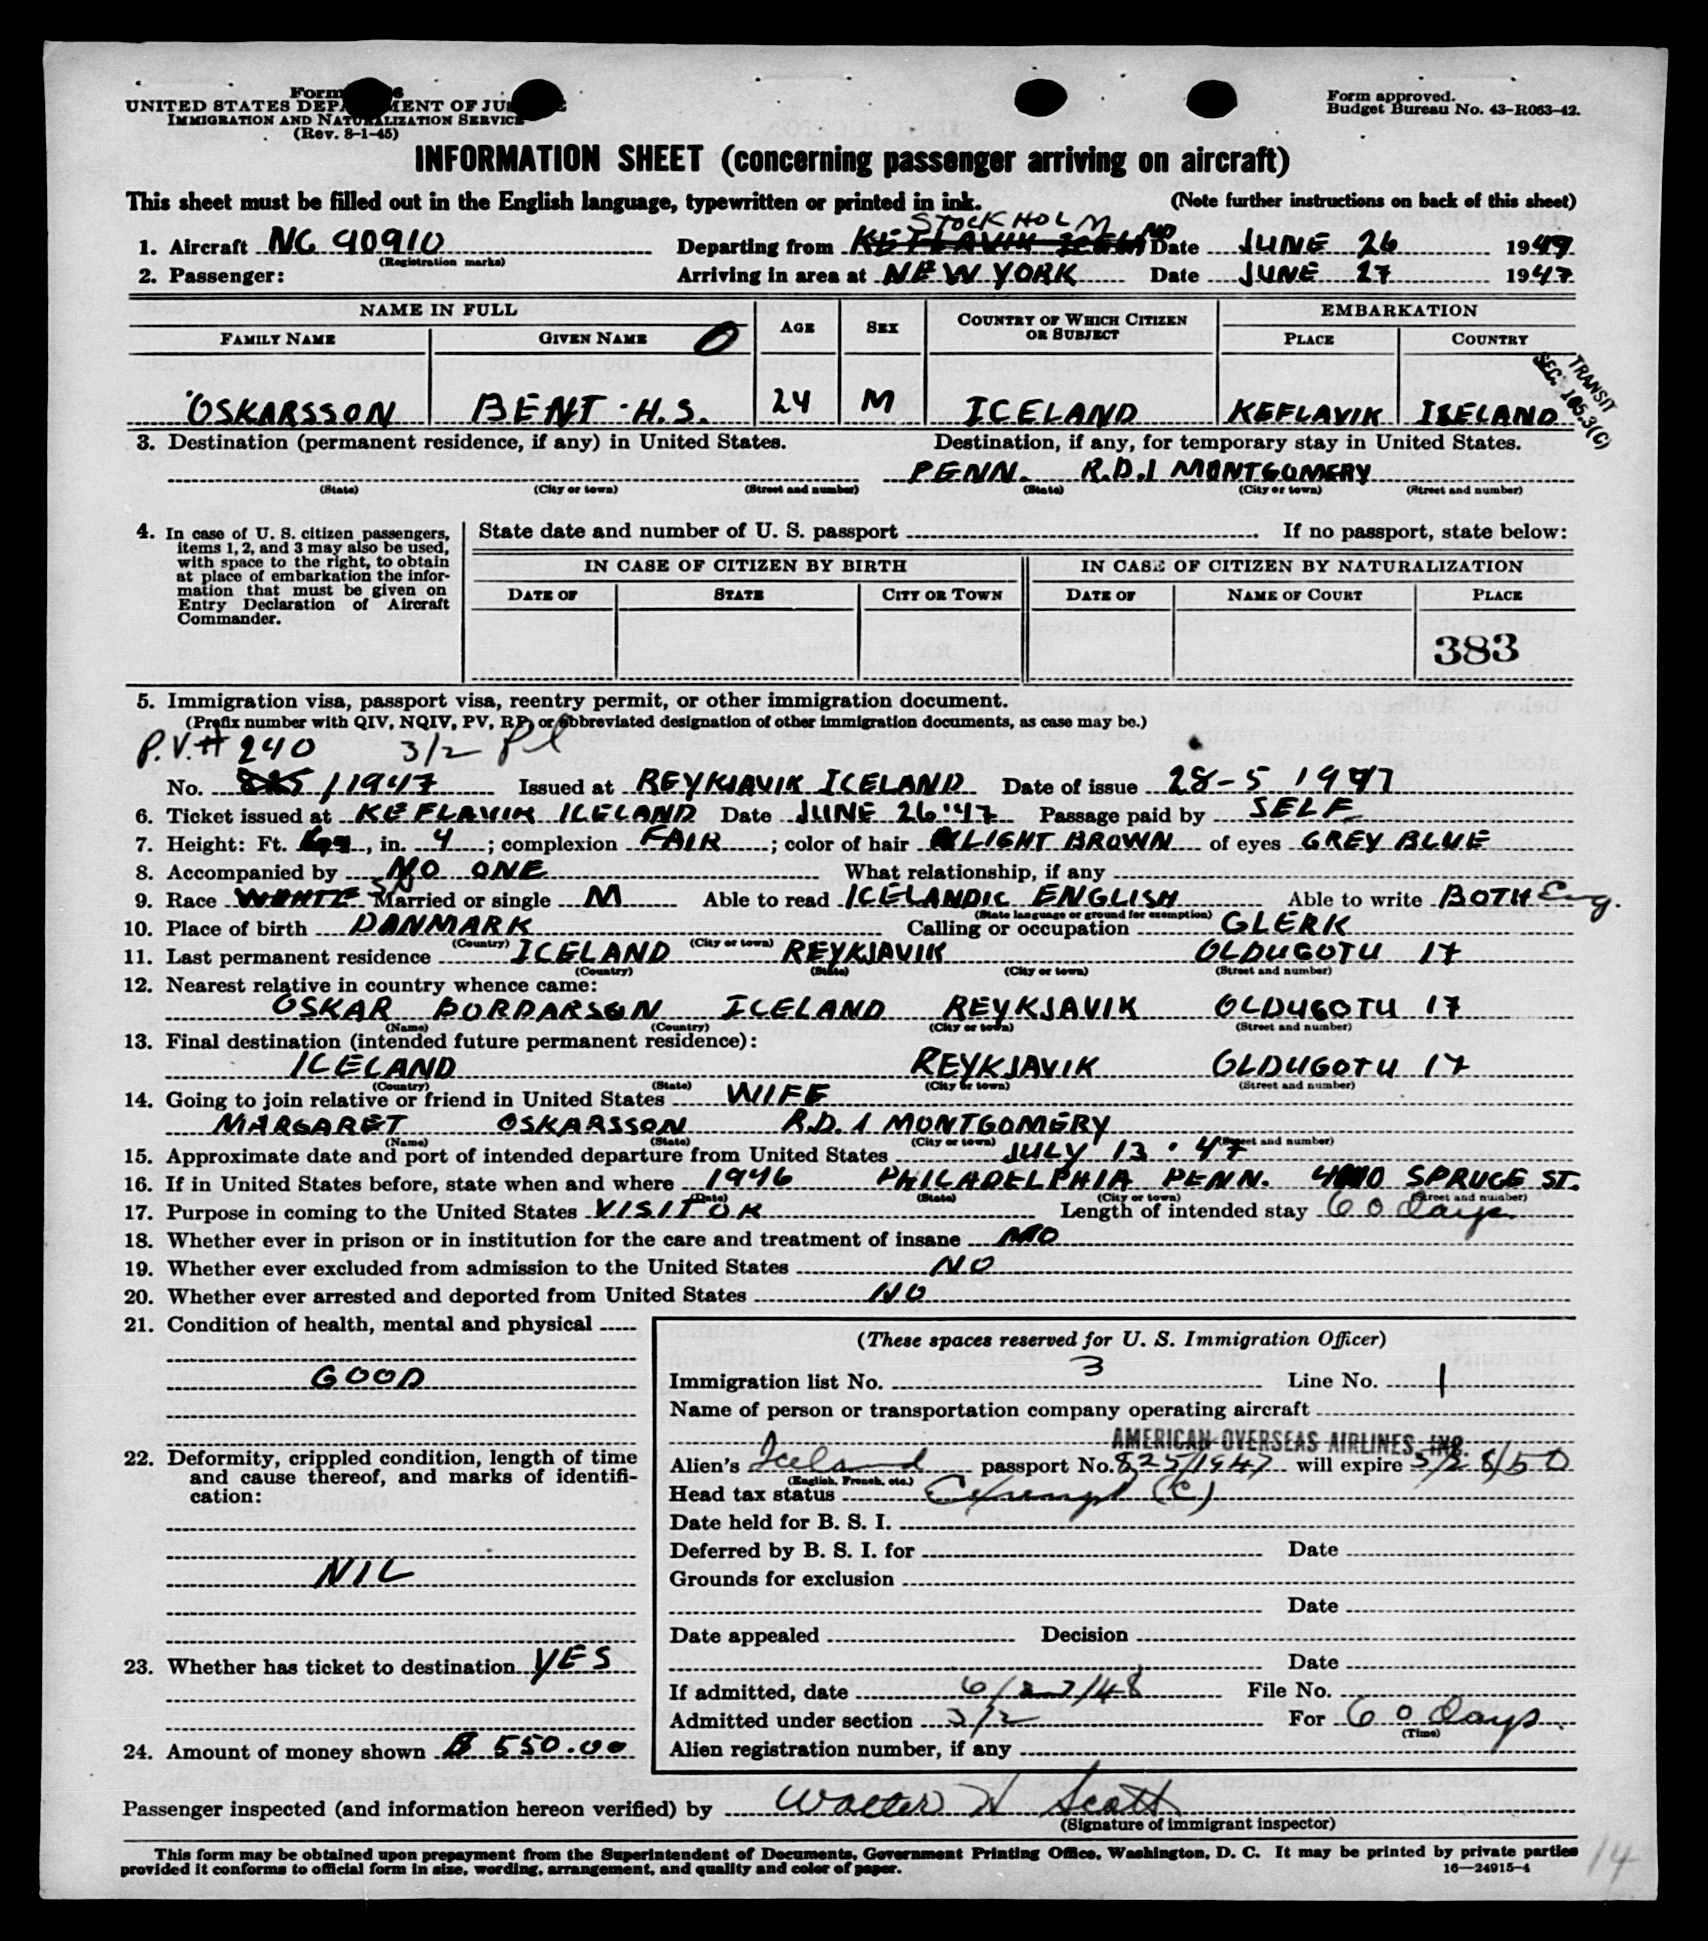 Form
UNITED STATES DEPARTMENT OF JUSTICE
IMMIGRATION AND NATURALIZATION SERVICE
(Rev. 8-1-45)
Form approved.
Budget Bureau No. 43-R063-42.
INFORMATION SHEET (concerning passenger arriving on aircraft)
This sheet must be filled out in the English language, typewritten or printed in ink. (Note further instructions on back of this sheet)
STOCKHOLM
1. Aircraft NC 90910 Departing from KEFLAVIK ICELAND Date JUNE 26 1947
(Registration marks)
2. Passenger: Arriving in area at NEW YORK Date JUNE 27 1947
NAME IN FULL AGE SEX COUNTRY OF WHICH CITIZEN OR SUBJECT EMBARKATION
FAMILY NAME GIVEN NAME O PLACE COUNTRY
TRANSIT
SEC. 165.3(C)
OSKARSSON BENT H.S. 24 M ICELAND KEFLAVIK ICELAND
3. Destination (permanent residence, if any) in United States. Destination, if any, for temporary stay in United States.
PENN. R.D.1 MONTGOMERY
(State) (City or town) (Street and number) (State) (City or town) (Street and number)
4. In case of U. S. citizen passengers, items 1, 2, and 3 may also be used, with space to the right, to obtain at place of embarkation the information that must be given on Entry Declaration of Aircraft Commander.
State date and number of U. S. passport If no passport, state below:
IN CASE OF CITIZEN BY BIRTH IN CASE OF CITIZEN BY NATURALIZATION
DATE OF STATE CITY OR TOWN DATE OF NAME OF COURT PLACE
383
5. Immigration visa, passport visa, reentry permit, or other immigration document.
(Prefix number with QIV, NQIV, PV, RP, or abbreviated designation of other immigration documents, as case may be.)
P.V.# 240 3/2 Pl
No. 825/1947 Issued at REYKJAVIK ICELAND Date of issue 28-5 1947
6. Ticket issued at KEFLAVIK ICELAND Date JUNE 26 '47 Passage paid by SELF
7. Height: Ft. , in. 4 ; complexion FAIR ; color of hair LIGHT BROWN of eyes GREY BLUE
8. Accompanied by NO ONE What relationship, if any
9. Race WHITE SN Married or single M Able to read ICELANDIC ENGLISH Able to write BOTH Eng.
(State language or ground for exemption)
10. Place of birth DANMARK Calling or occupation CLERK
(Country) (City or town)
11. Last permanent residence ICELAND REYKJAVIK OLDUGOTU 17
(Country) (State) (City or town) (Street and number)
12. Nearest relative in country whence came:
OSKAR BORDARSON ICELAND REYKJAVIK OLDUGOTU 17
(Name) (Country) (City or town) (Street and number)
13. Final destination (intended future permanent residence):
ICELAND REYKJAVIK OLDUGOTU 17
(Country) (State) (City or town) (Street and number)
14. Going to join relative or friend in United States WIFE
MARGARET OSKARSSON R.D. 1 MONTGOMERY
(Name) (State) (City or town) (Street and number)
15. Approximate date and port of intended departure from United States JULY 13 · 47
16. If in United States before, state when and where 1946 PHILADELPHIA PENN. SPRUCE ST.
(Date) (State) (City or town) (Street and number)
17. Purpose in coming to the United States VISITOR Length of intended stay 60 days
18. Whether ever in prison or in institution for the care and treatment of insane NO
19. Whether ever excluded from admission to the United States NO
20. Whether ever arrested and deported from United States NO
21. Condition of health, mental and physical
GOOD
22. Deformity, crippled condition, length of time and cause thereof, and marks of identification:
NIL
23. Whether has ticket to destination YES
24. Amount of money shown $ 550.00
(These spaces reserved for U. S. Immigration Officer)
Immigration list No. 3 Line No. 1
Name of person or transportation company operating aircraft
AMERICAN OVERSEAS AIRLINES, INC.
Alien's Iceland passport No. 825/1947 will expire 5/28/50
(English, French, etc.)
Head tax status Exempt (C)
Date held for B. S. I.
Deferred by B. S. I. for Date
Grounds for exclusion
Date
Date appealed Decision
Date
If admitted, date 6/27/48 File No.
Admitted under section 3/2 For 60 days
(Time)
Alien registration number, if any
Passenger inspected (and information hereon verified) by Walter H Scott
(Signature of immigrant inspector)
This form may be obtained upon prepayment from the Superintendent of Documents, Government Printing Office, Washington, D. C. It may be printed by private parties
provided it conforms to official form in size, wording, arrangement, and quality and color of paper. 16—24915-4
14